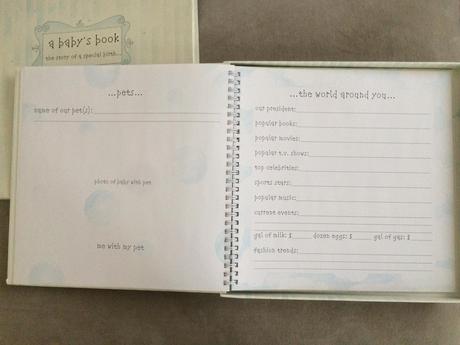 a baby's book
the story of a special birth...
...pets...
name of our pet(s):
photo of baby with pet
me with my pet
...the world around you...
our president:
popular books:
popular movies:
popular t.v. shows:
top celebrities:
sports stars:
popular music:
current events:
gal of milk: $ dozen eggs: $ gal of gas: $
fashion trends: